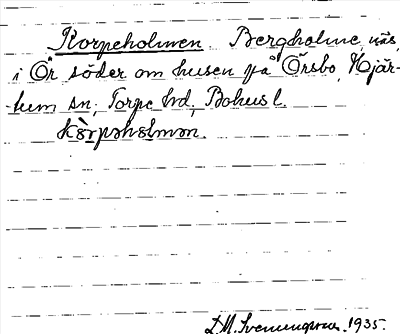 Korpeholmen Bergholme, näs,
i Ör, söder om husen på Örsbo, Hjär-
tum sn, Torpe hd, Bohusl.
kòrpəhɔlmən.
D.M. Svenungsson. 1935.